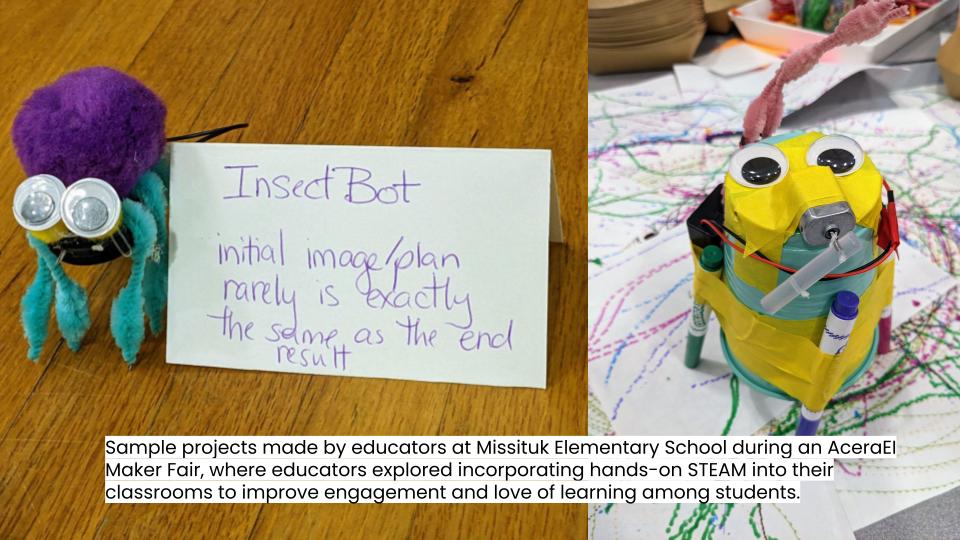 InsectBot
initial image/plan
rarely is exactly
the same as the end
result
Sample projects made by educators at Missituk Elementary School during an AceraEI
Maker Fair, where educators explored incorporating hands-on STEAM into their
classrooms to improve engagement and love of learning among students.